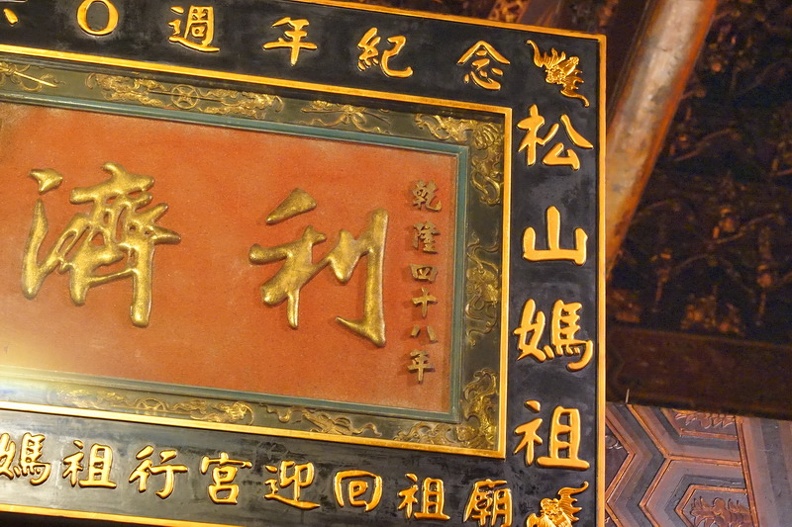 〇週年紀念
松山媽祖
乾隆四十八年
利濟
媽祖行宮迎回祖廟